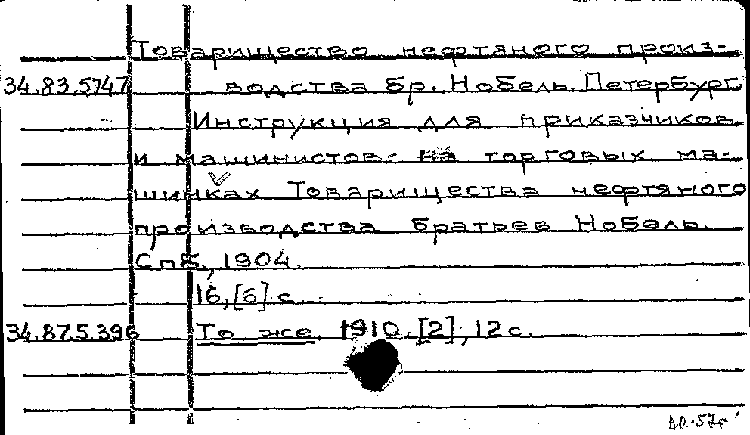 Товарищество нефтяного произ-
34.83.5747 водства бр. Нобель. Петербург.
Инструкция для приказчиков
и машинистов на торговых ма-
шинках Товарищества нефтяного
производства братьев Нобель.
Спб., 1904.
16, [6] с.
34.87.5.396 То же. 1910. [2], 12 с.